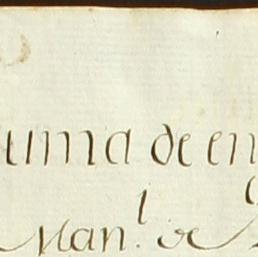 uma de en
Man.l de